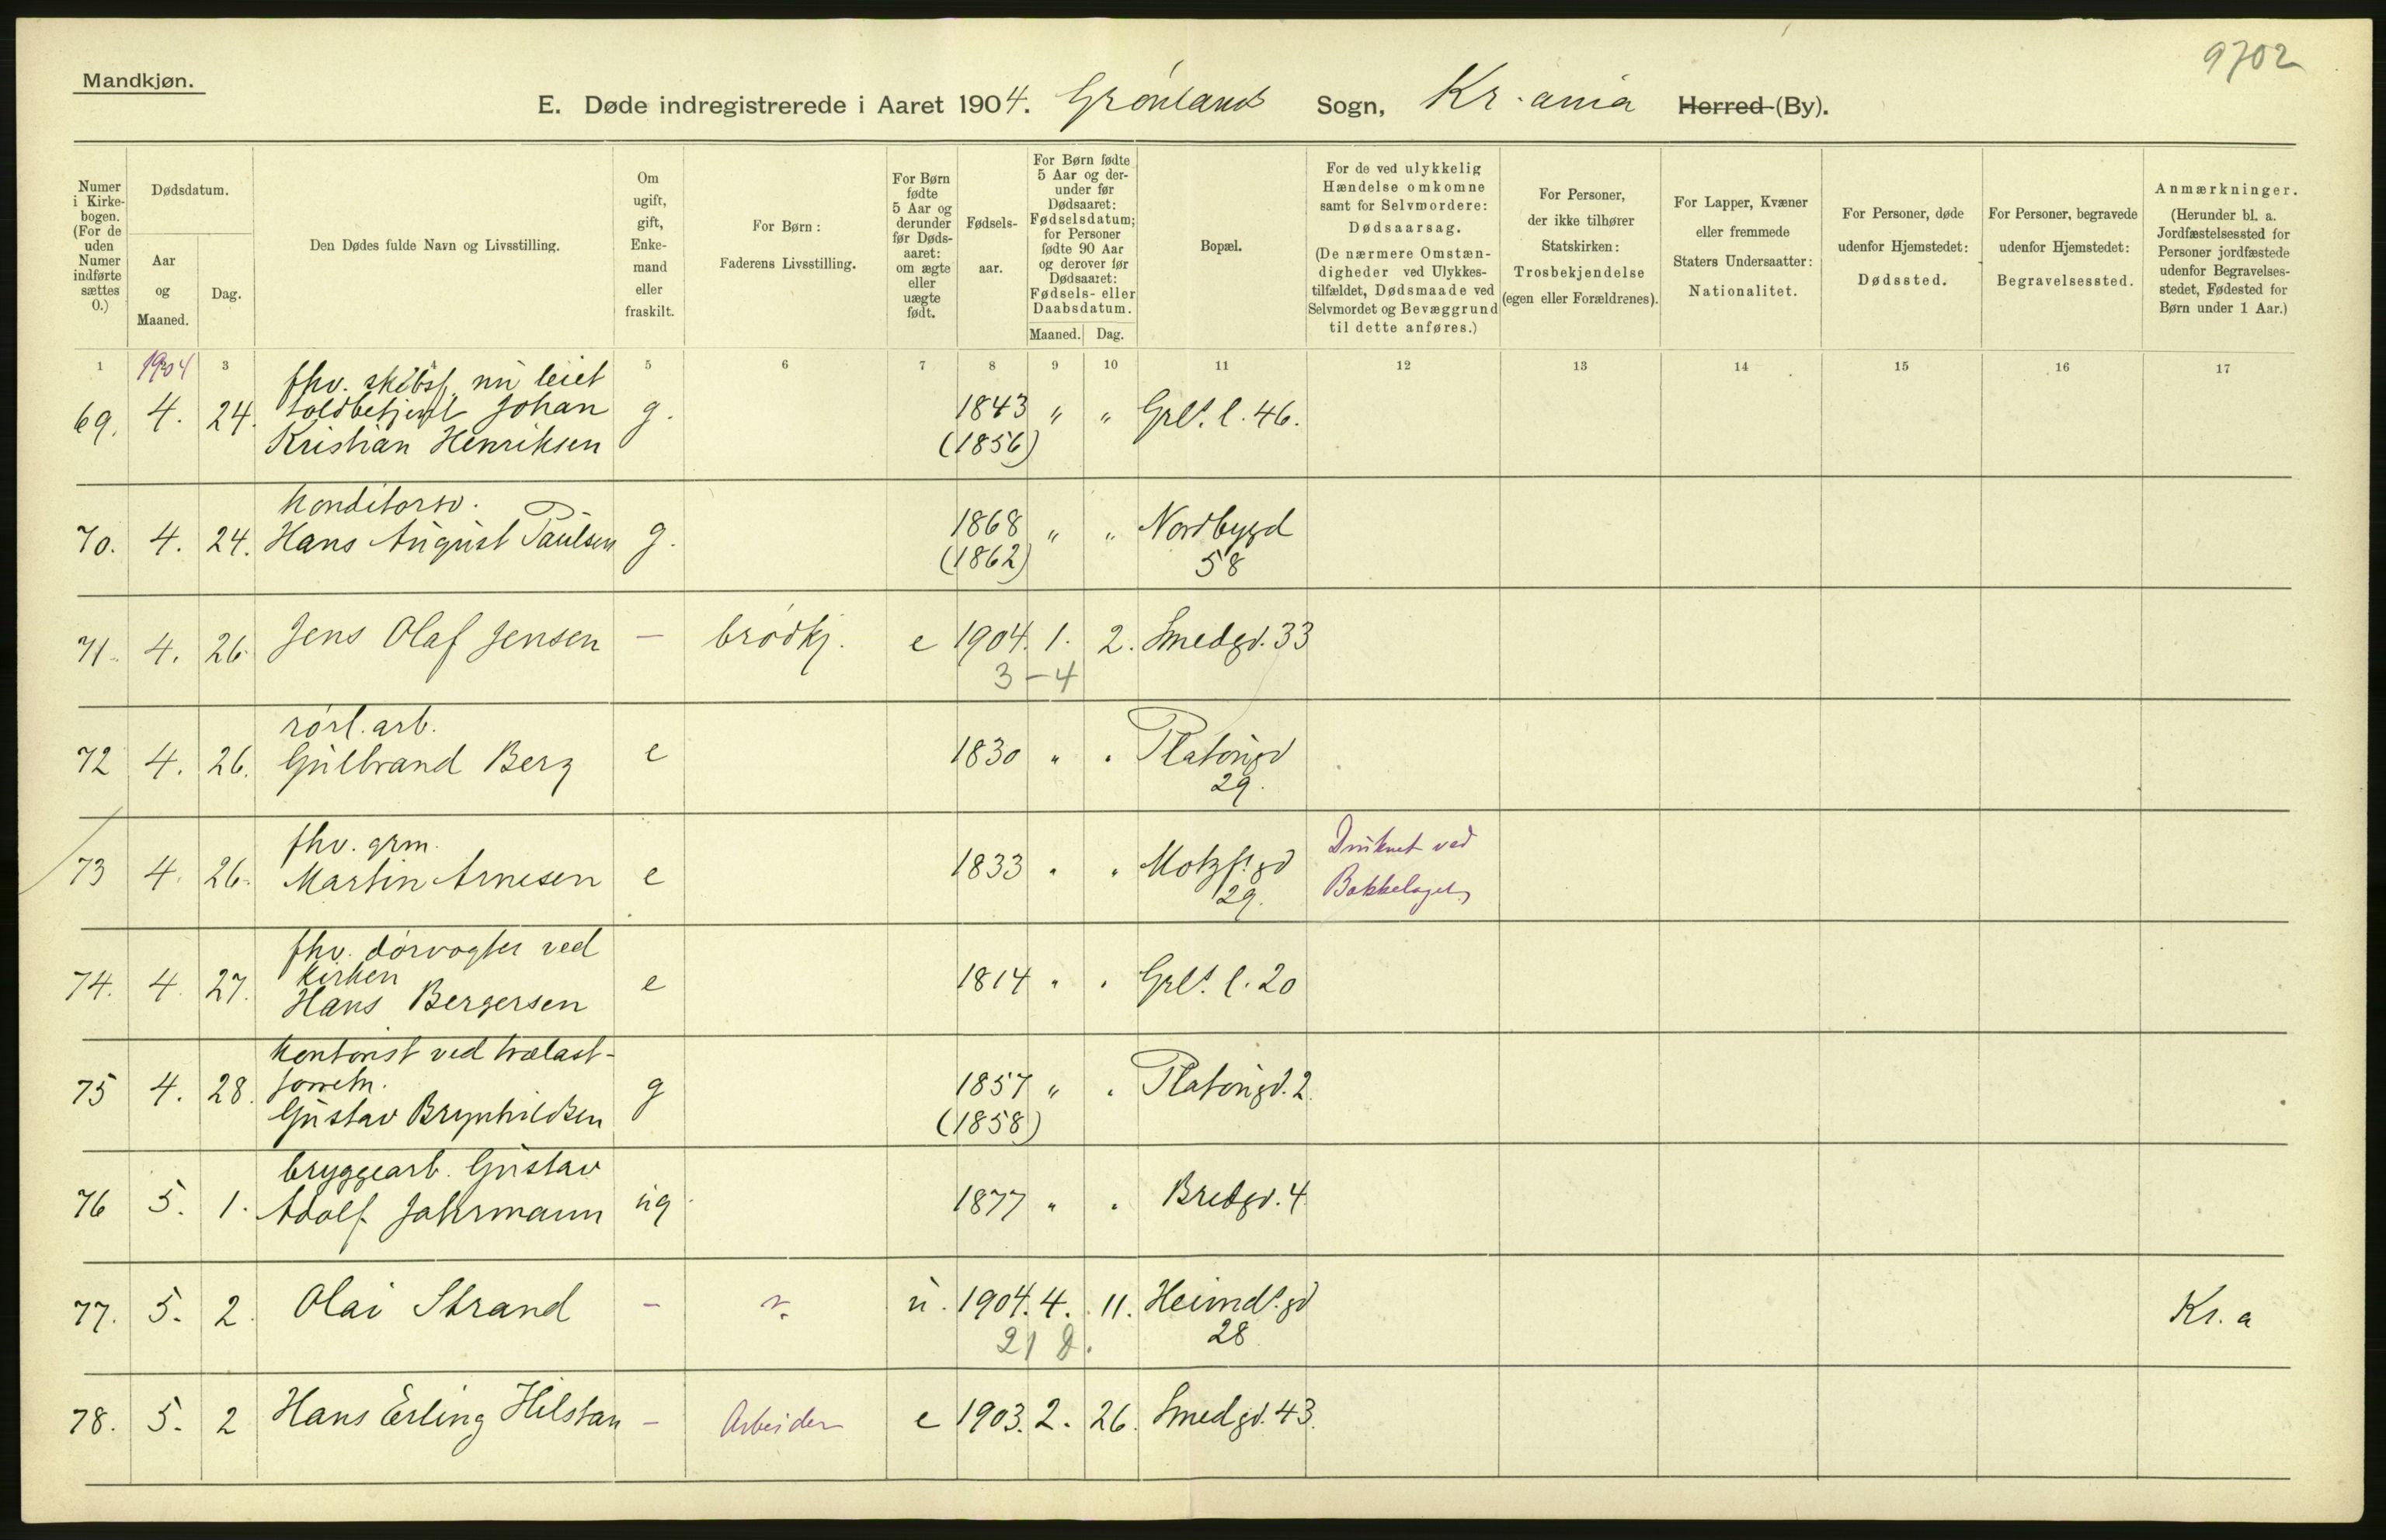 9702
Mandkjøn.
E. Døde indregistrerede i Aaret 1904. Grønlands Sogn, Kr.ania Herred (By).
Numer i Kirke-bogen. (For de uden Numer indførte sættes 0.)
Dødsdatum.
Aar og Maaned.
Dag.
Den Dødes fulde Navn og Livsstilling.
Om ugift, gift, Enke-mand eller fraskilt.
For Børn: Faderens Livsstilling.
For Børn fødte 5 Aar og derunder før Døds-aaret: om ægte eller uægte født.
Fødsels-aar.
For Børn fødte 5 Aar og der-under før Dødsaaret: Fødselsdatum; for Personer fødte 90 Aar og derover før Dødsaaret: Fødsels- eller Daabsdatum.
Maaned. Dag.
Bopæl.
For de ved ulykkelig Hændelse omkomne samt for Selvmordere: Dødsaarsag. (De nærmere Omstæn-digheder ved Ulykkes-tilfældet, Dødsmaade ved Selvmordet og Bevæggrund til dette anføres.)
For Personer, der ikke tilhører Statskirken: Trosbekjendelse (egen eller Forældrenes).
For Lapper, Kvæner eller fremmede Staters Undersaatter: Nationalitet.
For Personer, døde udenfor Hjemstedet: Dødssted.
For Personer, begravede udenfor Hjemstedet: Begravelsessted.
Anmærkninger. (Herunder bl. a. Jordfæstelsessted for Personer jordfæstede udenfor Begravelses-stedet, Fødested for Børn under 1 Aar.)
1 1904 3 5 6 7 8 9 10 11 12 13 14 15 16 17
fhv. skibsf. nu leiet
69. 4. 24. toldbetjent Johan g. 1843 " " Grl.s l. 46.
Kristian Henriksen (1856)
Konditorsv.
70. 4. 24. Hans August Paulsen g. 1868 " " Nordbygd
(1862) 58
71. 4. 26. Jens Olaf Jensen — brødkj. e 1904. 1. 2. Smedgd. 33
3 - 4
rørl. arb.
72 4. 26. Gulbrand Berg e 1830 " " Platougd
29.
fhv. grm. Druknet ved
73 4. 26. Martin Arnesen e 1833 " " Motzf.s gd Bækkelaget
29.
fhv. dørvogter ved
kirken
74. 4 27. Hans Bergersen e 1814 " " Grl.s l. 20
Kontorist ved trælast-
75 4. 28. forretn. g 1857 " " Platougd. 2.
Gustav Brynhildsen (1858)
bryggearb. Gustav
76 5. 1. Adolf Jahrmann ug 1877 " " Bredgd. 4
77. 5. 2. Olai Strand — u. 1904. 4. 11. Heimd.s gd Kr. a
21 D. 28
78. 5. 2 Hans Erling Hilstan — Arbeider e 1903. 2. 26. Smedgd. 43.